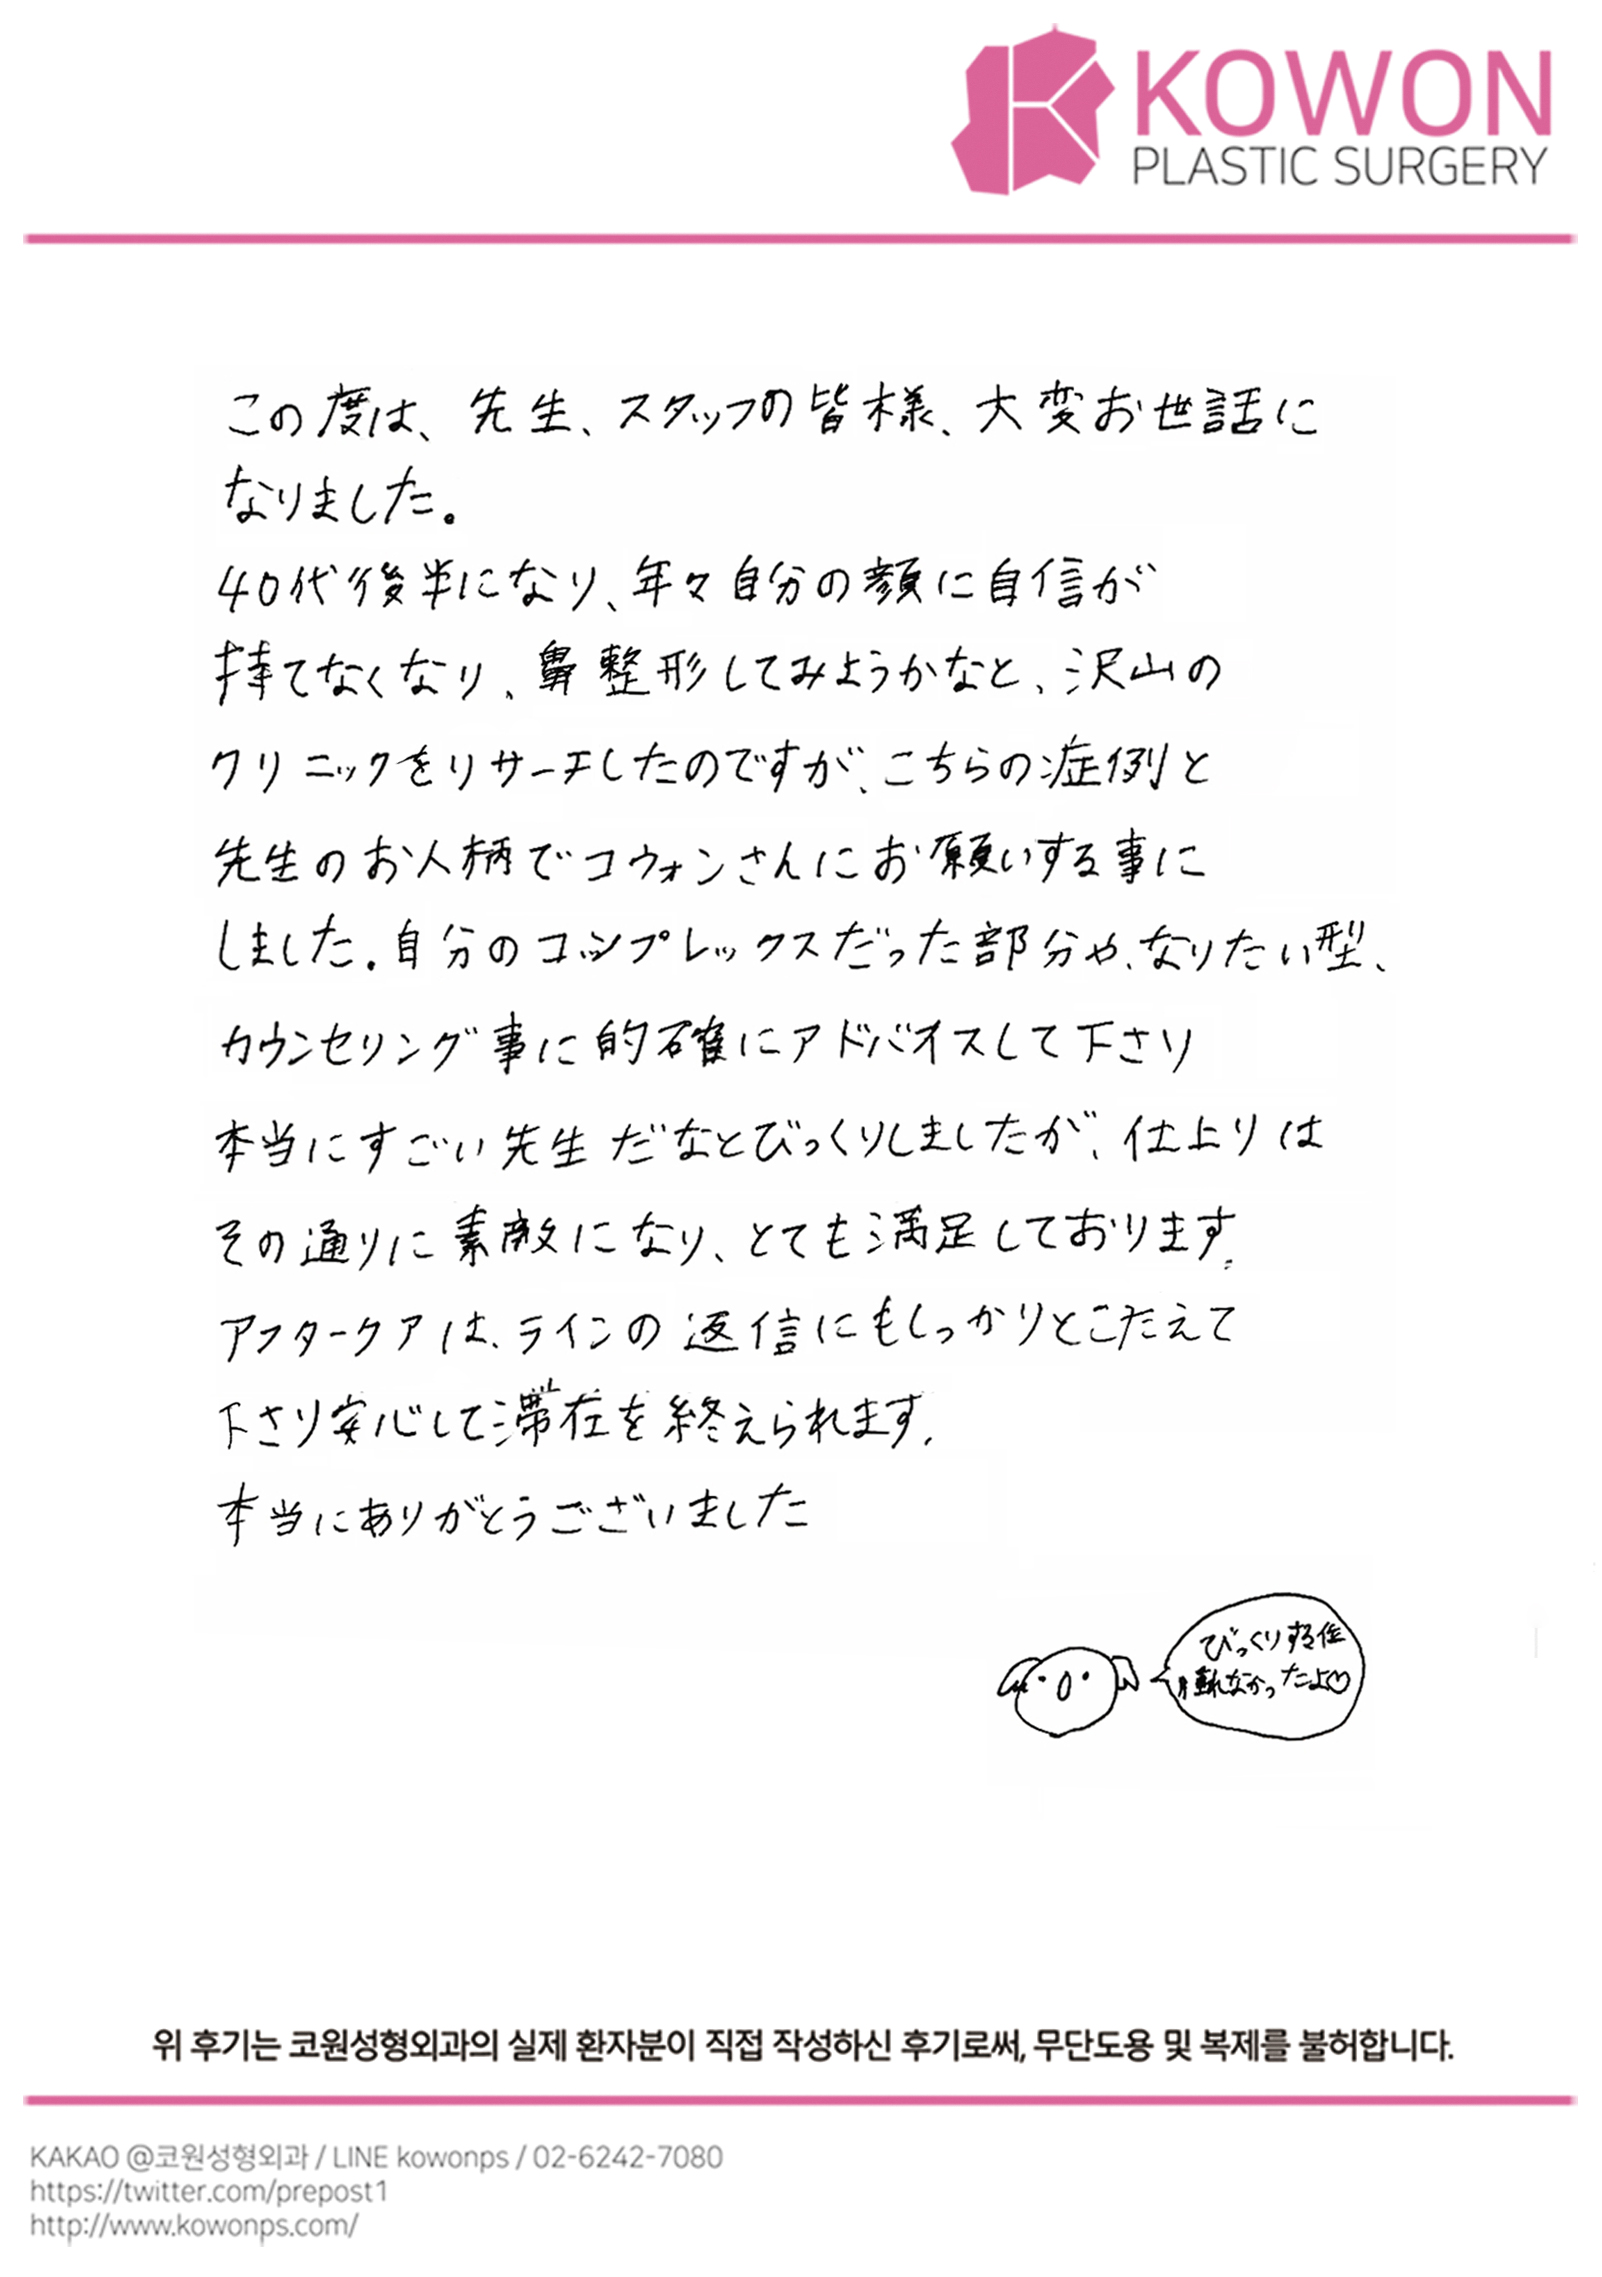 KOWON
PLASTIC SURGERY
この度は、先生、スタッフの皆様、大変お世話に
なりました。
40代後半になり、年々自分の顔に自信が
持てなくなり、鼻整形してみようかなと、沢山の
クリニックをリサーチしたのですが、こちらの症例と
先生のお人柄でコウォンさんにお願いする事に
しました。自分のコンプレックスだった部分や、なりたい型、
カウンセリング事に的確にアドバイスして下さり
本当にすごい先生だなとびっくりしましたが、仕上りは
その通りに素敵になり、とても満足しております。
アフタークアは、ラインの返信にもしっかりとこたえて
下さり安心して滞在を終えられます。
本当にありがとうございました
びっくりする位
腫れなかったよ♡
위 후기는 코원성형외과의 실제 환자분이 직접 작성하신 후기로써, 무단도용 및 복제를 불허합니다.
KAKAO @코원성형외과 / LINE kowonps / 02-6242-7080
https://twitter.com/prepost1
http://www.kowonps.com/